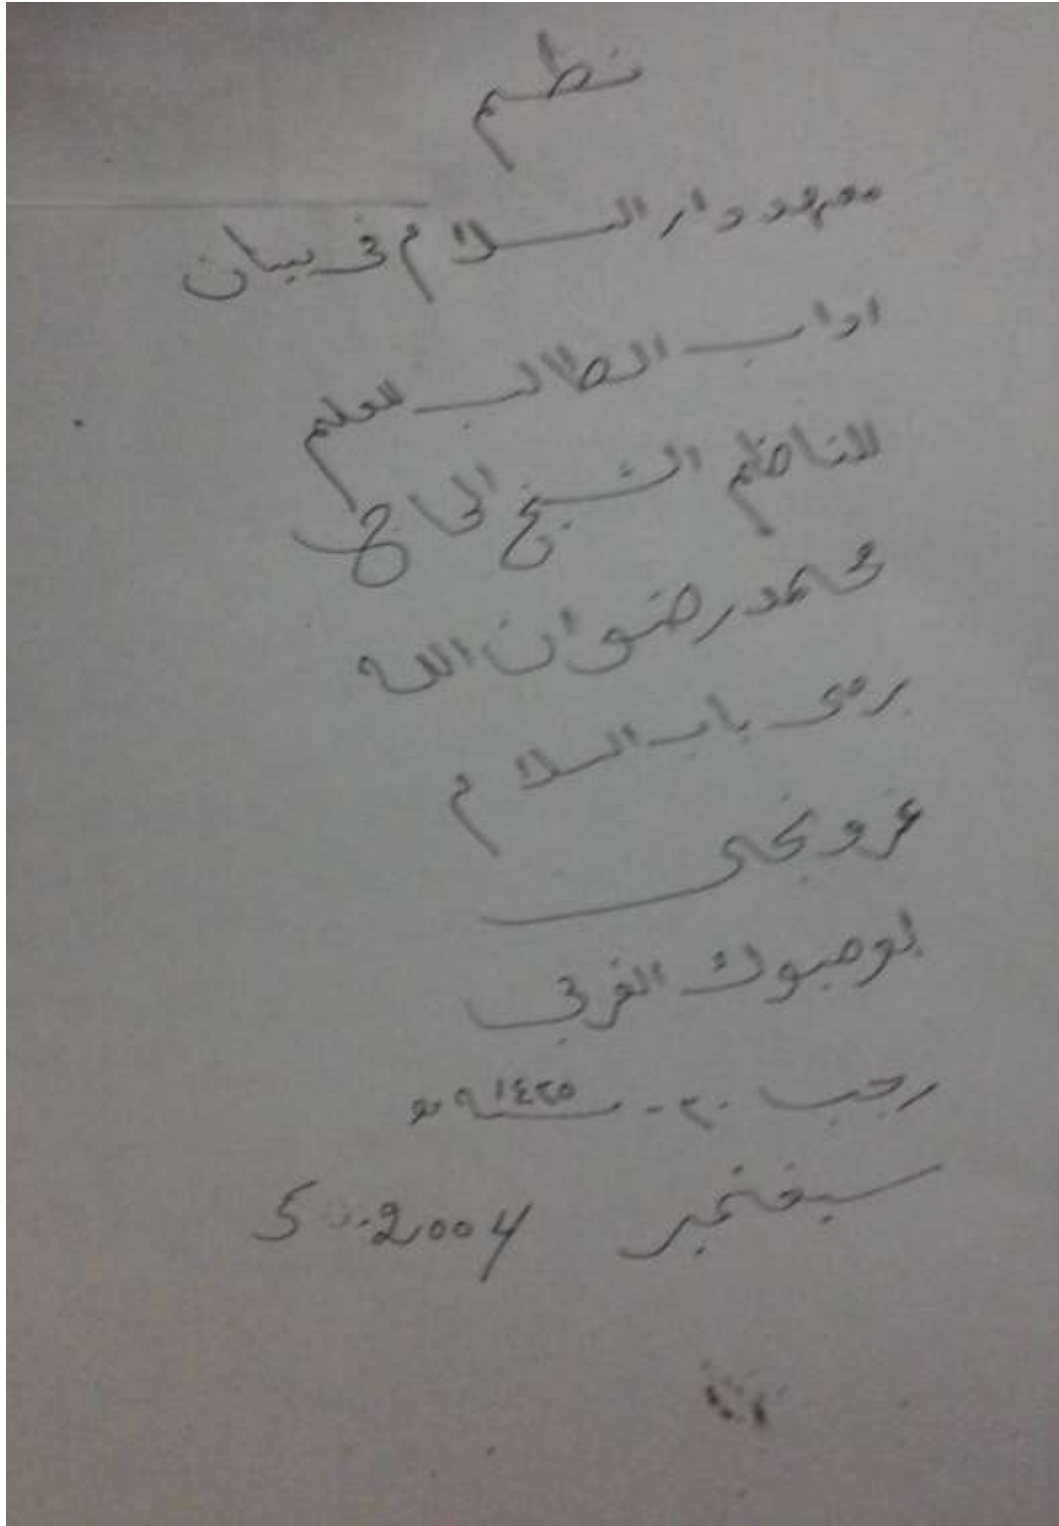 نظم
معهد دار السلام فى بيان
اداب الطالب للعلم
للناظم الشيخ الحاج
محمد رضوان الله
برمى باب السلام
غرونجى
لومبوك الغربى
رجب - ٢٠ - سنة ١٤٢٥ ه
سيفتمبر 5 - 2004